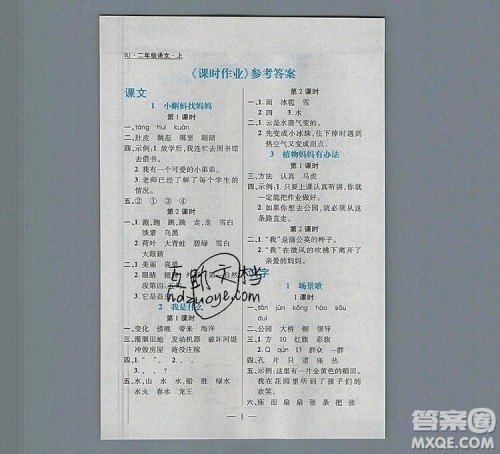 RJ·二年级语文·上
《课时作业》参考答案
课文
1 小蝌蚪找妈妈
第1课时
一、táng huī kuān
二、肚皮 跳起 哪里 眼睛
四、示例:1. 放学后,我连忙去图书馆
去借书。
2. 我有一个可爱的小弟弟。
3. 老师已经了解了每个学生的
情况。
五、② ① ④ ③
第2课时
一、1. 跑,跑 跳,跳 走,走 雪白
淡紫 乌黑
2. 荷叶 大青蛙 碧绿 雪白
眼睛
二、1. 美丽 喜爱
2. 眼睛
段第四
3. 它是益
2 我是什么
第1课时
一、变化 傍晚 带来 海洋
三、灌溉田地 发动机器 破坏河堤
冲毁房屋 淹没庄稼
第2课时
五、水,山 水,水 船,水 山,水
水火 春水 星水 王
第2课时
一、1. 雨 冰雹 雪
2. 四 3. 水
二、1. 云是水蒸气变的。
2. 先变成小冰珠,往下落时,遇到
热空气又变成雨点。
3 植物妈妈有办法
第1课时
三、方法 认真 马虎
四、示例:1. 只要上课认真听讲,你就
一定能把作业做好。
2. 如果你想去公园,就必须从这
条路直走。
第2课时
二、1. “我”是蒲公英的种子。
2. “我”在微风的吹拂下离开了
亲爱的妈妈。
识字
1 场景歌
1课时
二、公园 大桥 铜 领导
三、1. 方 10 红旗 彩旗
2. Q qún 13 群众 一群
四、孔 片 只 道 座 丛
五、示例:这里有一片金黄色的稻田。
我在花园里听到了孩子们的
欢笑。
六、座 面 扇 扇 张 条 把 张
1
互助文档
hdzuoye.com
答案圈
MXQE.COM